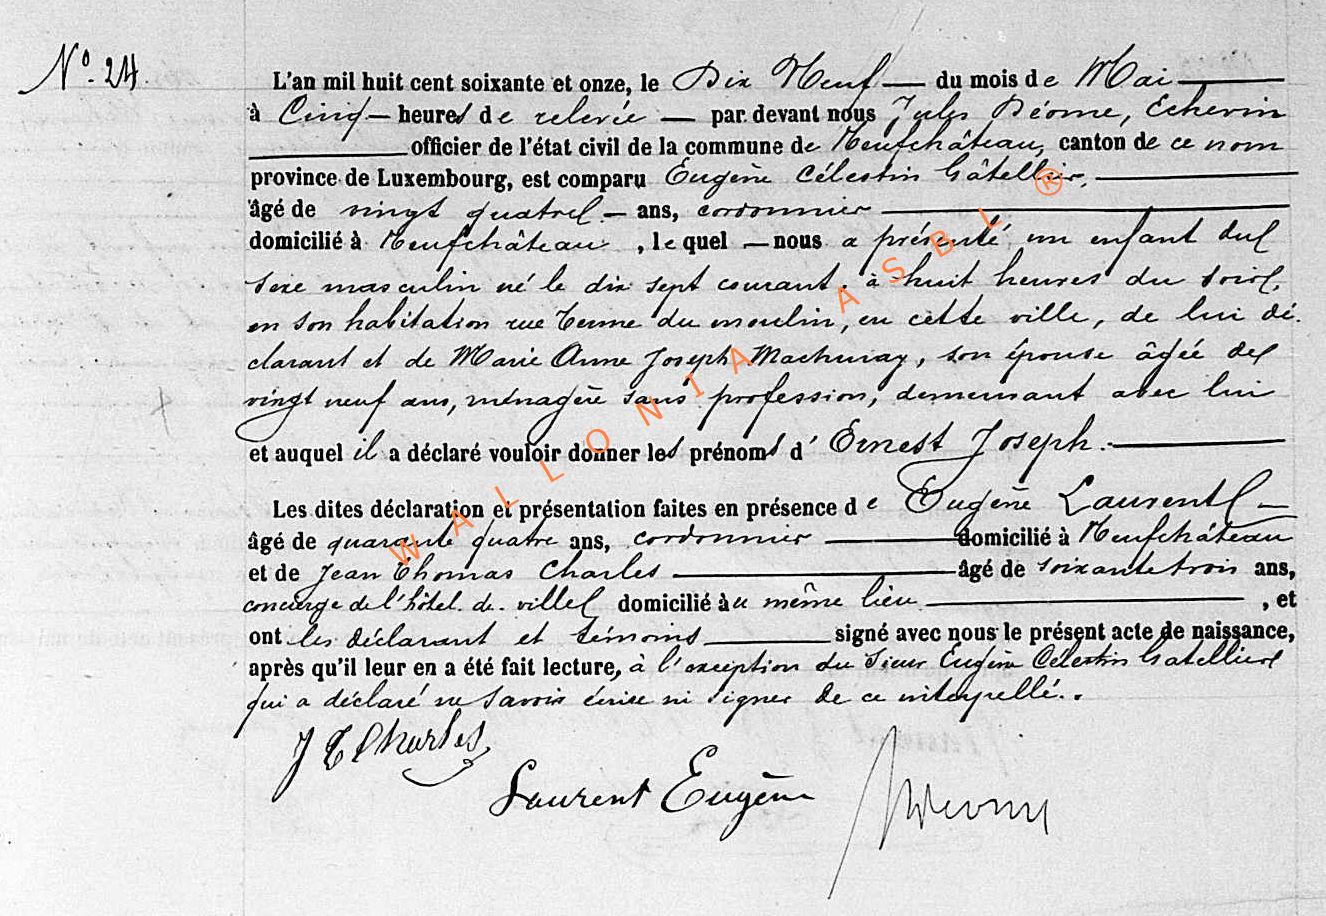 N° 24.
L'an mil huit cent soixante et onze, le Dix Neuf du mois de Mai
à Cinq heures de relevée par devant nous Jules Déome, Echevin
officier de l'état civil de la commune de Neufchâteau, canton de ce nom
province de Luxembourg, est comparu Eugène Célestin Gâtellier,
âgé de vingt quatre ans, cordonnier
domicilié à Neufchâteau, lequel nous a présenté un enfant du
sexe masculin né le dix sept courant, à huit heures du soir,
en son habitation rue Terme du moulin, en cette ville, de lui dé-
clarant et de Marie Anne Joseph Machuray, son épouse âgée de
vingt neuf ans, ménagère sans profession, demeurant avec lui
et auquel il a déclaré vouloir donner les prénoms d'Ernest Joseph.
Les dites déclaration et présentation faites en présence de Eugène Laurent
âgé de quarante quatre ans, cordonnier domicilié à Neufchâteau
et de Jean Thomas Charles âgé de soixante trois ans,
concierge de l'hôtel de ville domicilié au même lieu, et
ont les déclarant et témoins signé avec nous le présent acte de naissance,
après qu'il leur en a été fait lecture, à l'exception du Sieur Eugène Célestin Gatellier
qui a déclaré ne savoir écrire ni signer de ce interpellé.
J T Charles
Laurent Eugène
WALLONIA ASBL ®